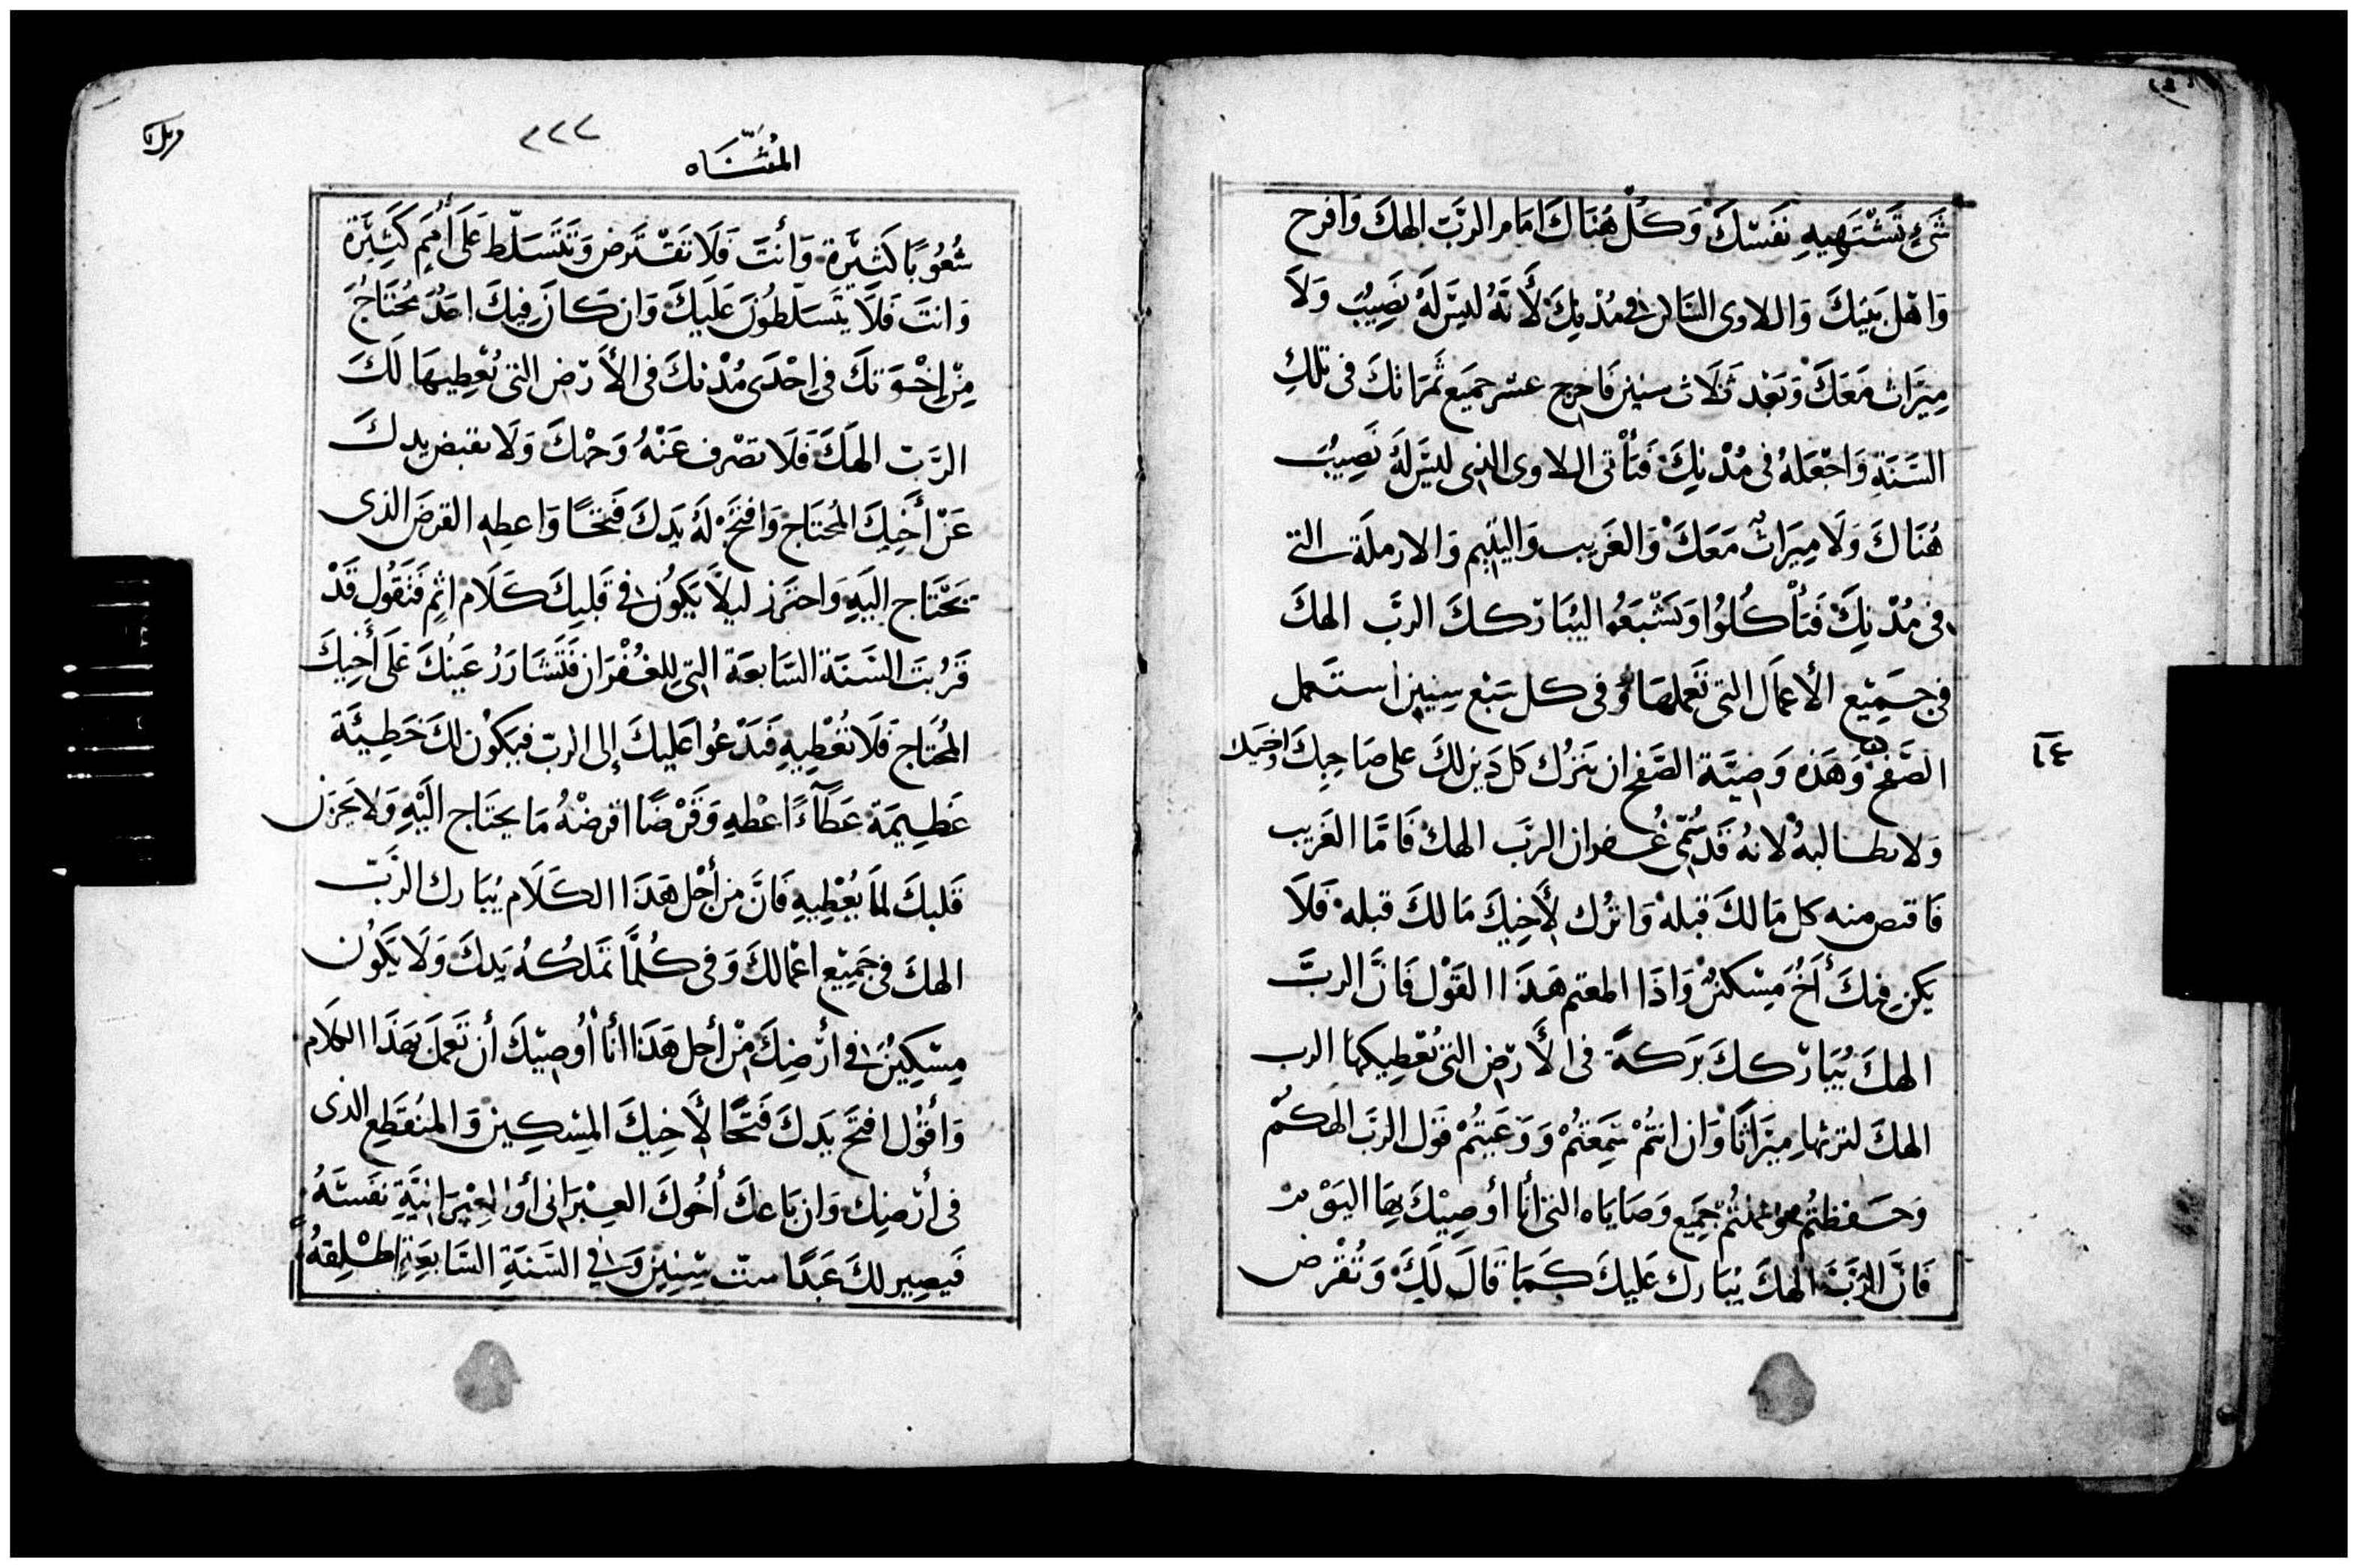 شَيْءٍ تَشْتَهِيهِ نَفْسَكَ وَكُلْ هُنَاكَ امَام الرَّبّ الهكَ وَافرح
وَاهْل بَيْتكَ وَاللاوى السَّاكن في مُدْنِكَ لأَنَّهُ ليسَ لهُ نَصِيبٌ وَلاَ
مِيرَاث مَعَكَ وَبَعْد ثَلَاث سنين فَاخرج عشر جميَع ثَمَرَاتكَ فى تلكِ
السَّنَةِ وَاجْعَلهُ فى مُدْنِكَ فَيَأْتى اللاوى الذى ليسَ لهُ نَصِيبٌ
هُنَاكَ وَلَا مِيرَاثٌ مَعَكَ وَالغَريب وَاليَتِيم وَالارملَة التى
فى مُدْنِكَ فَيَأْكُلوُا وَيَشْبَعُوا ليُبَارْككَ الربَّ الهكَ
فى جَمِيْع الأَعمَال التى تَعملهَا وَفى كل سَبْع سِنِين استَعمل
الصَّفح وَهَذه وَصِيَّة الصَّفح ان تَترُك كل دَين لكَ على صَاحِبكَ وَاخيك
١٤
وَلا تطالبهُ لانهُ قَدْ سُمّى غُفران الربّ الهكَ فَامَّا الغَريب
فَاقتص منه كل مَا لكَ قبلهُ وَاترُك لأَخِيكَ مَا لكَ قبله فَلَا
يكن فيكَ أَخٌ مِسْكينٌ وَاذَا اتممتم هَذَا القَوْل فَانَّ الربَّ
الهكَ يُبَارْككَ بَرَكةً فى الأَرْض التى يُعْطِيكهَا الرب
الهكَ لترثهَا مِيرَاثًا وَان انتُمْ سَمِعْتُمْ وَوَعَيتُمْ قَول الربّ الهكمْ
وَحَفِظتُم وعملتُمْ جَمِيع وَصَايَاه التى أنَا أوصِيْكَ بهَا اليَوْم
فَانَّ الرَّبَّ الهكَ يُبَارك عَليكَ كَمَا قَالَ لَكَ وَتُقْرض
٢٢٢
المُثنَّاه
شُعُوبًا كَثِيْرَة وَأَنتَ فَلَا تَقْتَرض وَتَتَسَلّط عَلَى أُمَم كَثِيْرَة
وَانتَ فَلَا يَتَسَلّطُونَ عَلَيكَ وَان كَانَ فِيكَ احَدٌ مُحْتَاجٌ
مِنْ اخْوَتكَ في احْدَى مُدْنكَ فى الأَرْض التى يُعْطِيهَا لَكَ
الرَّبّ الهَكَ فَلَا تصْرف عَنْهُ وَجْهكَ وَلَا تقبض يدكَ
عَنْ أَخِيكَ المُحتَاج وَافتَحْ لَهُ يَدكَ فَتحًا وَاعطِهِ القرض الذى
يَحْتَاج اليَهِ وَاحترز ليلَّا يَكُون في قَلبِكَ كَلَام اثم فَتَقُول قَدْ
قَرُبَتَ السَّنَة السَّابعَة التى للغُفْرَان فَتَشَازَرُ عَينُكَ عَلَى أَخِيكَ
المُحتَاج فَلَا تُعْطِيهِ فَيَدْعُوا عَليكَ إلى الربّ فيَكُون لكَ خَطِيئَة
عَظِيمَة عَطَآءً اعْطهِ وَقَرْضًا اقرضْهُ مَا يحتَاج اليْهِ وَلا يحزن
قَلبكَ لما تُعْطِيهِ فَانَّ من أجْل هَذَا الكَلَام يُبَارك الرَبّ
الهكَ فى جَمِيْع اعْمَالكَ وَفى كُلَّمَا تَملكُهُ يَدكَ وَلَا يَكُون
مِسْكِينٌ في أرْضِكَ مْن أجل هَذَا أنَا أوصِيْكَ أن تَعمَل بهَذَا الكلَام
وَأقوُل افتَح يَدكَ فَتْحًا لأَخِيكَ المِسْكِين وَالمنُقَطِع الذى
فى أرْضِك وَان بَاعكَ أخُوكَ العِبْرَانى أو العِبْرَانِيَّةِ نَفسَهُ
فَيصِير لكَ عَبدًا ستّ سِنِين وَفي السَّنَةِ السَّابعَةِ اطْلِقهُ